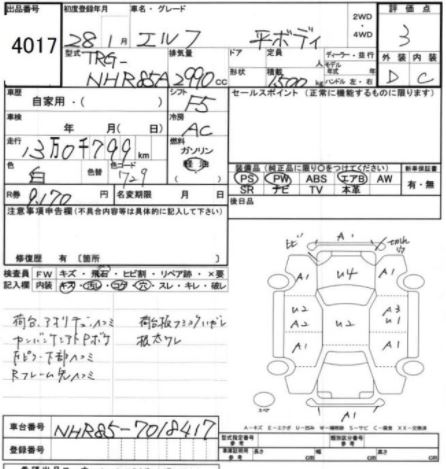 出品番号
4017
初度登録年月
28年1月
車名・グレード
エルフ
平ボディ
2WD
・
4WD
評価点
3
型式
TRG-
NHR85A
排気量
2990cc
ドア
形状
定員
人
積載
1500kg
ディーラー・並行
モデル
年式 年
ハンドル 左・右
外装
D
内装
C
車歴
自家用・( )
シフト
F5
セールスポイント(正常に機能するものに限ります)
車検
年 月( 日)
冷房
AC
走行
13万0千799km
燃料
ガソリン
軽油
色
白
色替
色コード
729
装備品(純正品に限り○をつけてください)
新車保証書
PS PW ABS エアB AW
SR ナビ TV 本革
有・無
R券
9,170円
名変期限 月 日
後日品
注意事項申告欄(不具合内容等は具体的に記入して下さい)
修復歴 有〔箇所 〕
検査員
記入欄
FW キズ・飛石・ヒビ割・リペア跡・×要
内装 キズ・汚れ・コゲ・穴・スレ・キレ・破レ
荷台、アオリ
Rフレーム先ハコミ
板大ワレ
A1
U4
A1
A1
U2
A1
U2
A3
U1
A2
A1
A1
A1
スペア
車台番号
NHR85-7018417
登録番号
A-キズ E-エクボ U-凹み W-補修跡 S-サビ C-腐食 XX-交換済
型式指定番号
参考
類別区分番号
参考
車庫証明用
参考
長さ
cm
幅
cm
高さ
cm